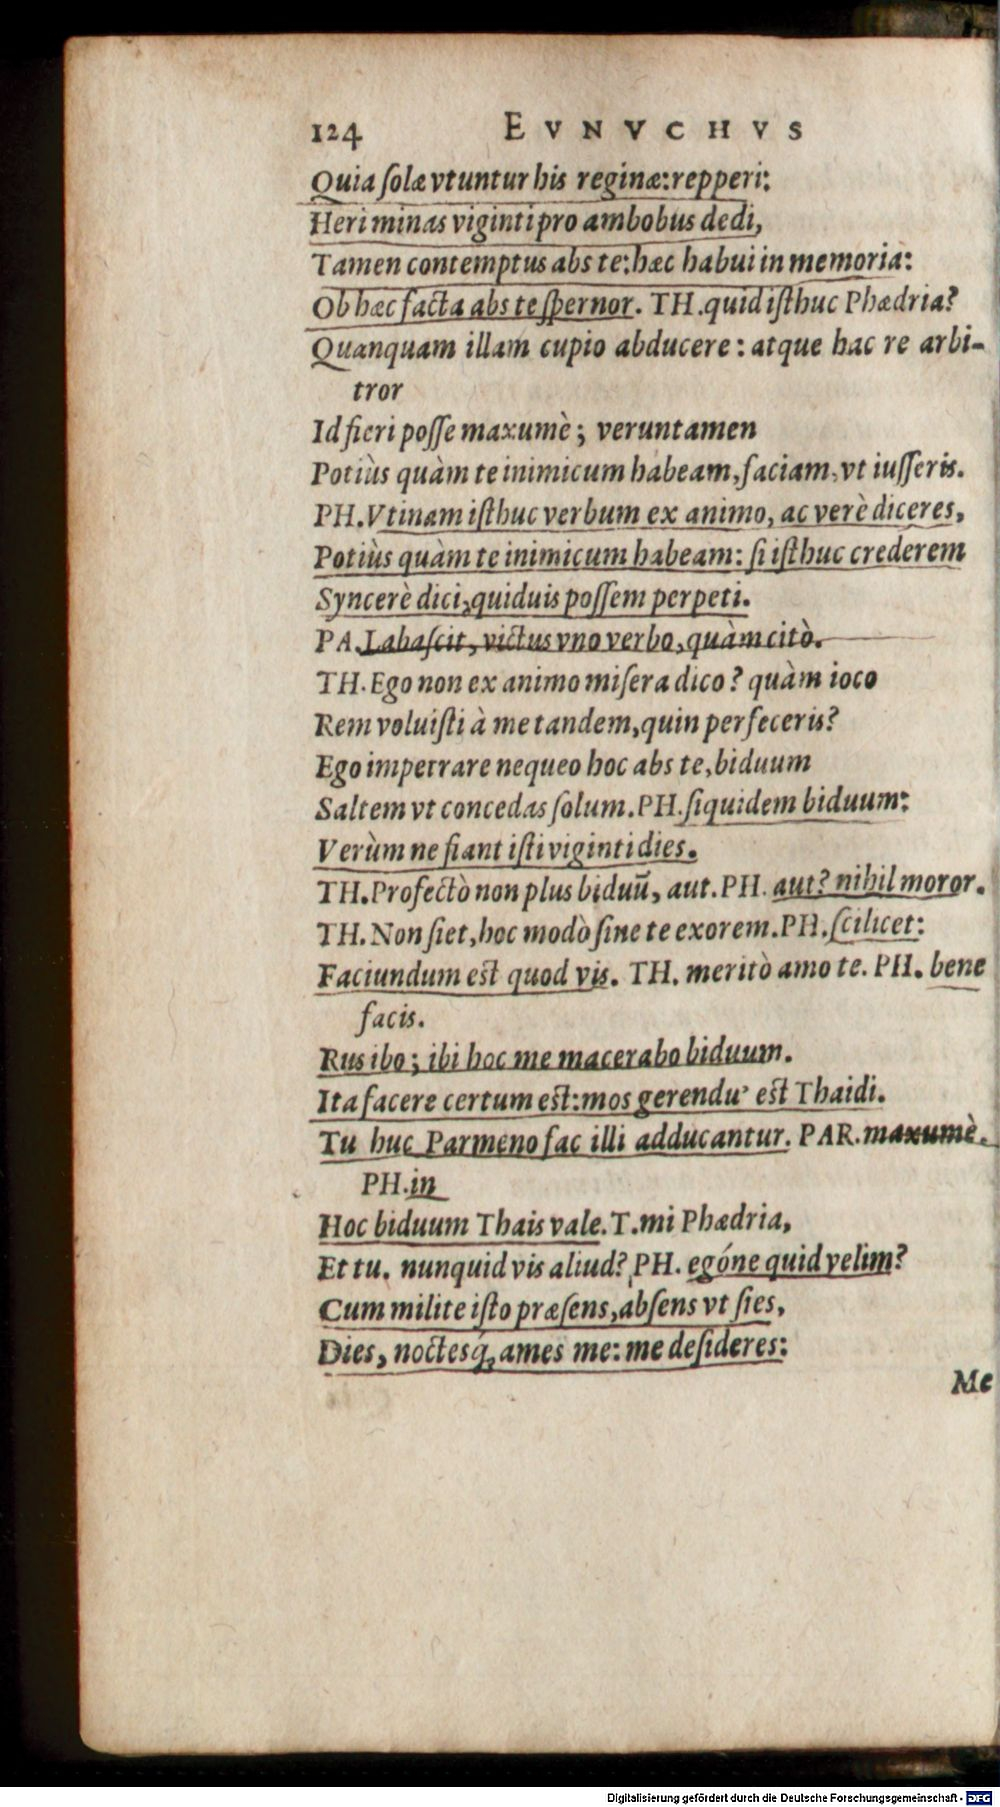 124 EVNVCHVS
Quia ſolæ vtuntur his reginæ: repperi:
Heri minas viginti pro ambobus dedi,
Tamen contemptus abs te: hæc habui in memoria:
Ob hæc facta abs te ſpernor. TH. quid iſthuc Phædria?
Quanquam illam cupio abducere: atque hac re arbi-
tror
Id fieri poſſe maxumè; veruntamen
Potiùs quàm te inimicum habeam, faciam, vt iuſſeris.
PH. Vtinam iſthuc verbum ex animo, ac verè diceres,
Potiùs quàm te inimicum habeam: ſi iſthuc crederem
Syncerè dici, quiduis poſſem perpeti.
PA. Labaſcit, victus vno verbo, quàm citò.
TH. Ego non ex animo miſera dico? quàm ioco
Rem voluiſti à me tandem, quin perfeceris?
Ego impetrare nequeo hoc abs te, biduum
Saltem vt concedas ſolum. PH. ſiquidem biduum:
Verùm ne fiant iſti viginti dies.
TH. Profectò non plus biduū, aut. PH. aut? nihil moror.
TH. Non fiet, hoc modò ſine te exorem. PH. ſcilicet:
Faciundum est quod vis. TH. meritò amo te. PH. bene
facis.
Rus ibo; ibi hoc me macerabo biduum.
Ita facere certum est: mos gerendu' est Thaidi.
Tu huc Parmeno fac illi adducantur. PAR. maxumè.
PH. in
Hoc biduum Thais vale. T. mi Phædria,
Et tu. nunquid vis aliud? PH. egóne quid velim?
Cum milite iſto præſens, abſens vt ſies,
Dies, noctesq́, ames me: me deſideres:
Me
Digitalisierung gefördert durch die Deutsche Forschungsgemeinschaft - DFG